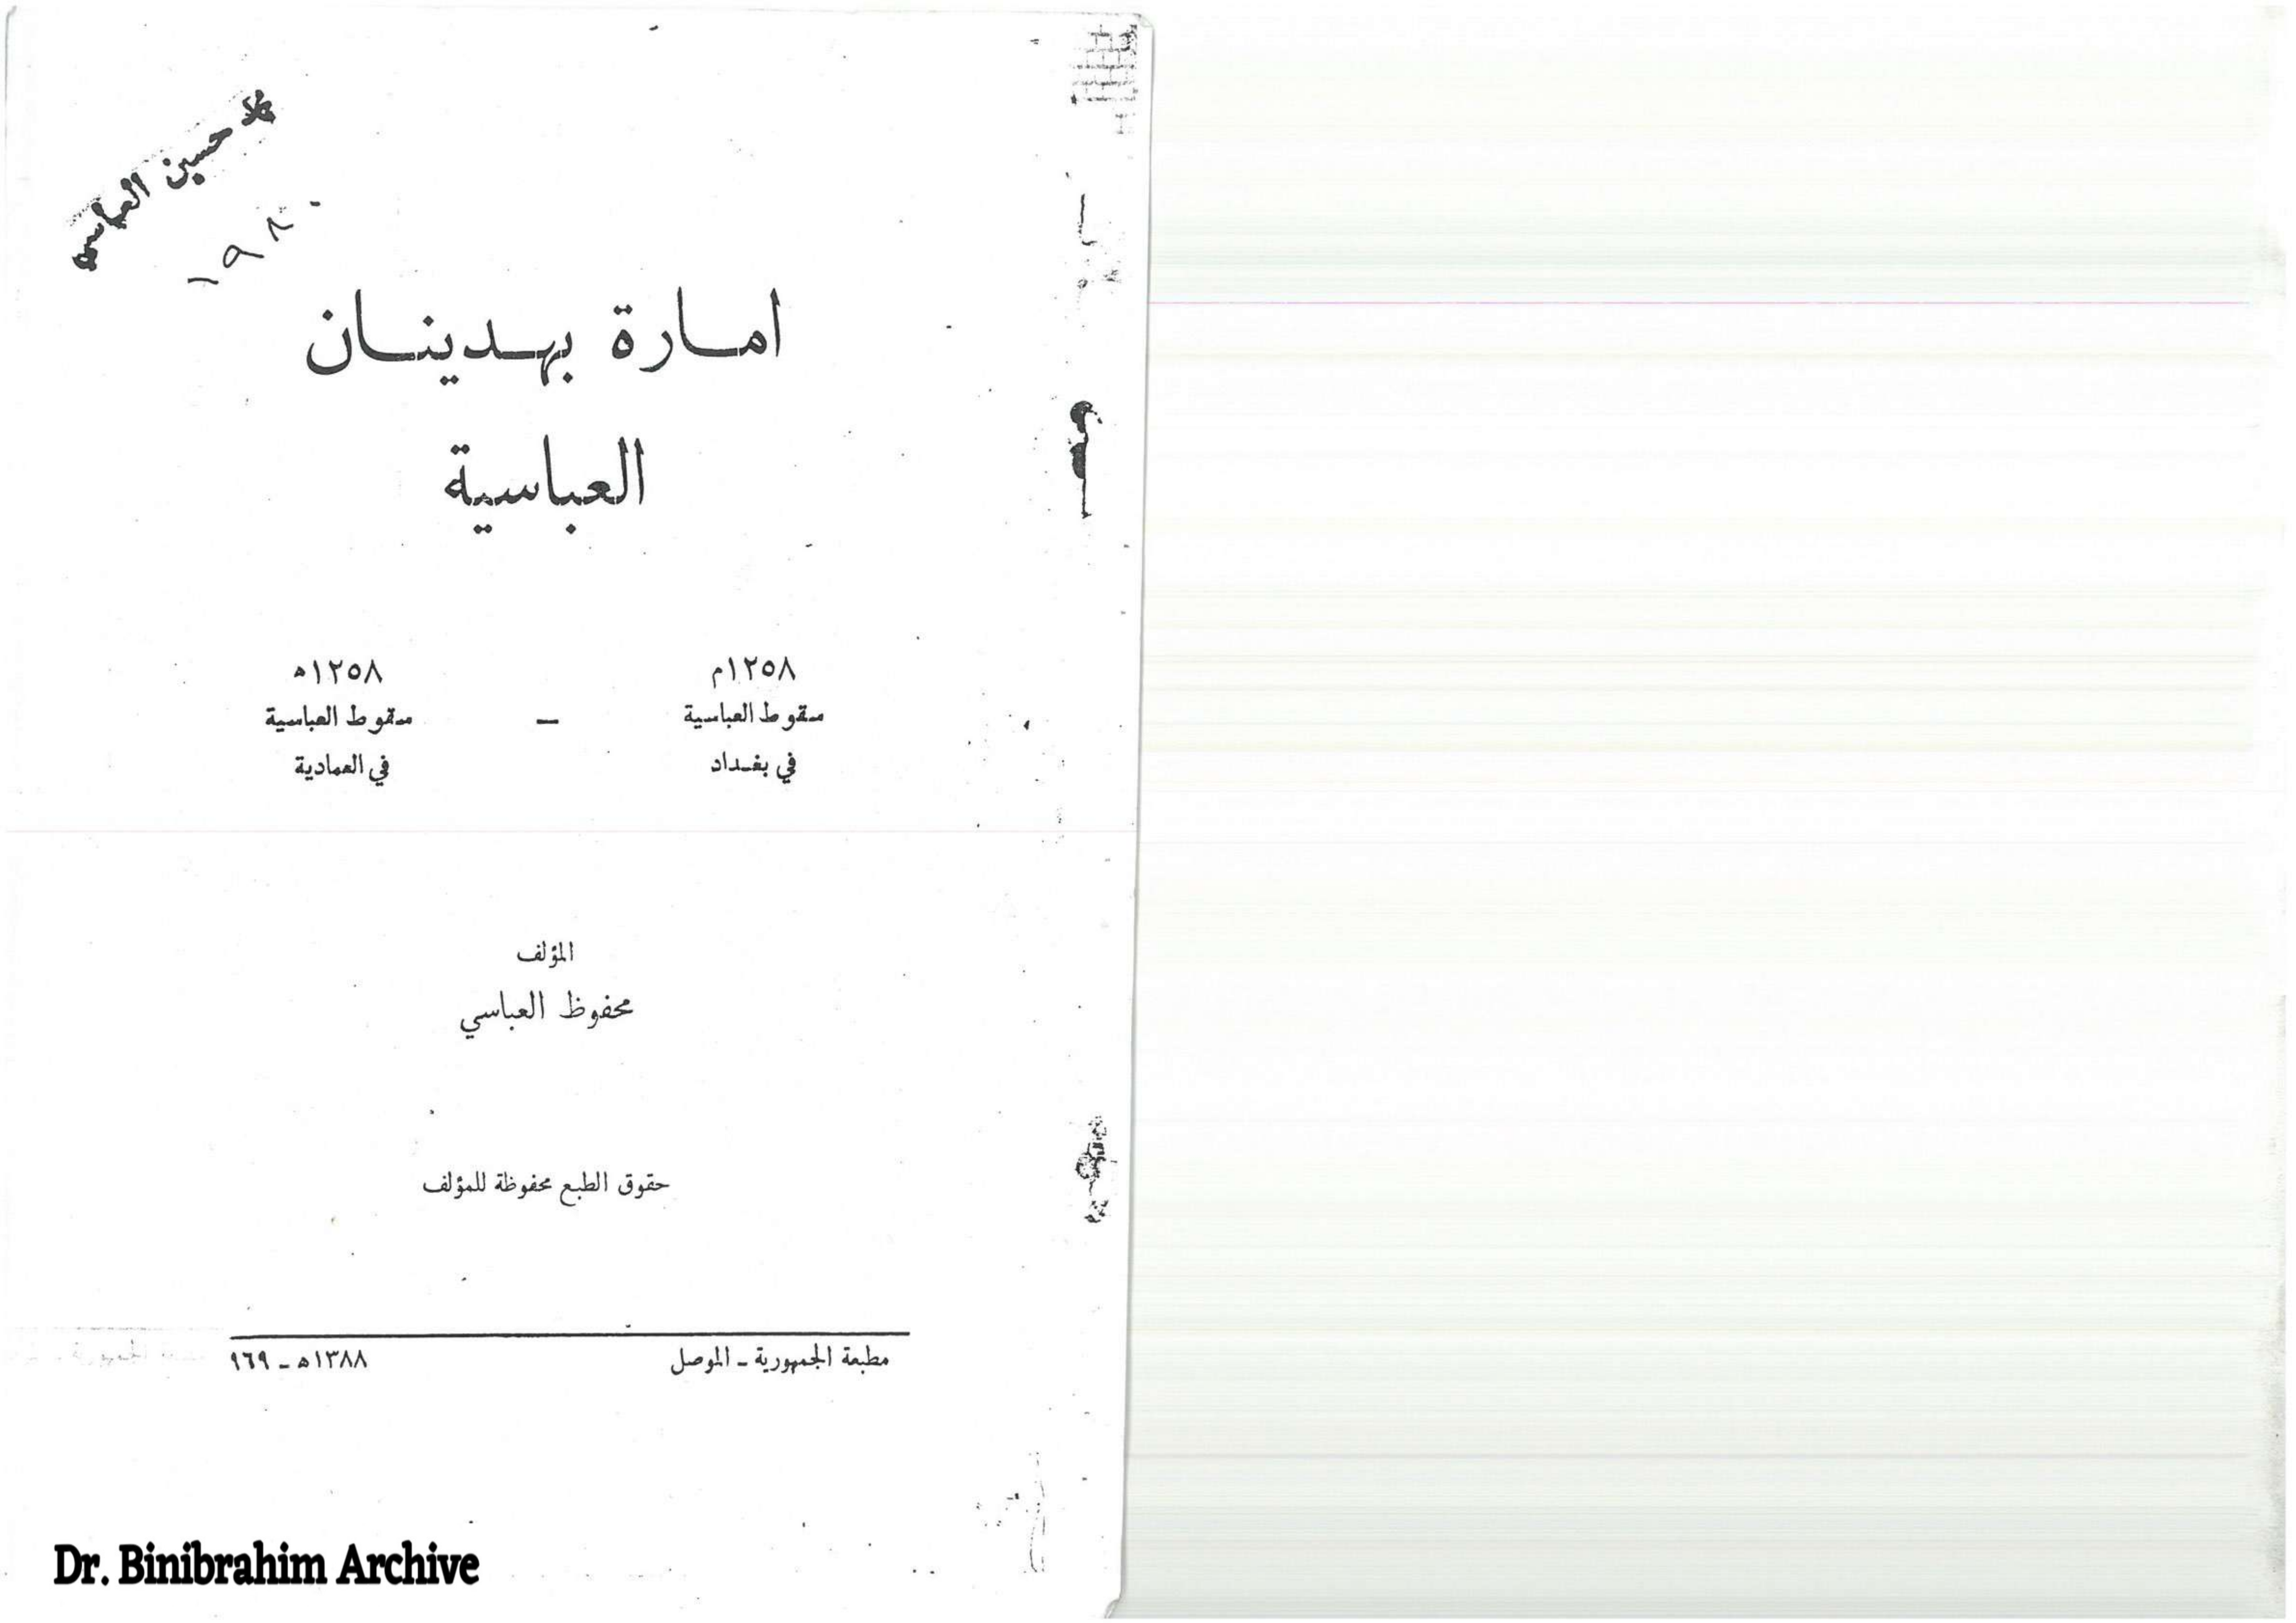 حسين العباسي
١٩٨٠
امارة بهدينان
العباسية
١٢٥٨م
سقوط العباسية
في بغداد
—
١٢٥٨ه
سقوط العباسية
في العمادية
المؤلف
محفوظ العباسي
حقوق الطبع محفوظة للمؤلف
مطبعة الجمهورية ـ الموصل
١٣٨٨ه ـ ٩٦٩
Dr. Binibrahim Archive